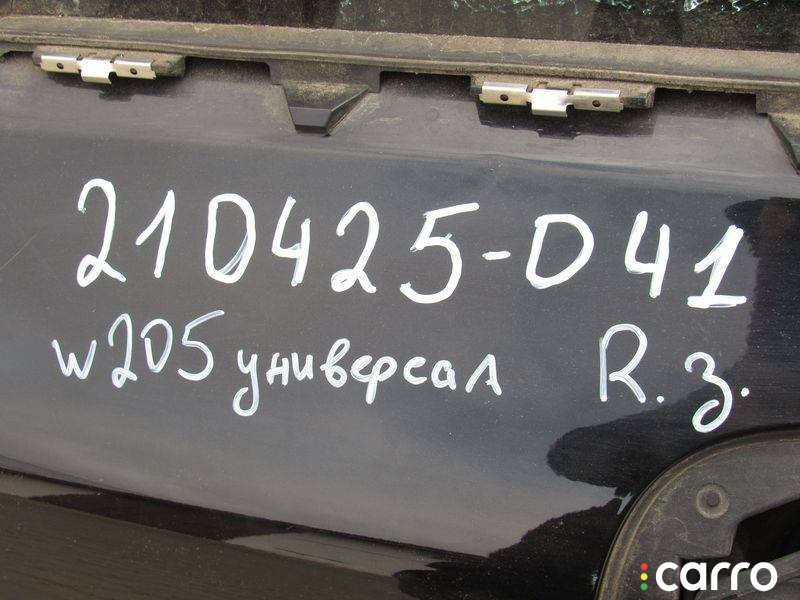 210425-041
w205 универсал R.з.
carro